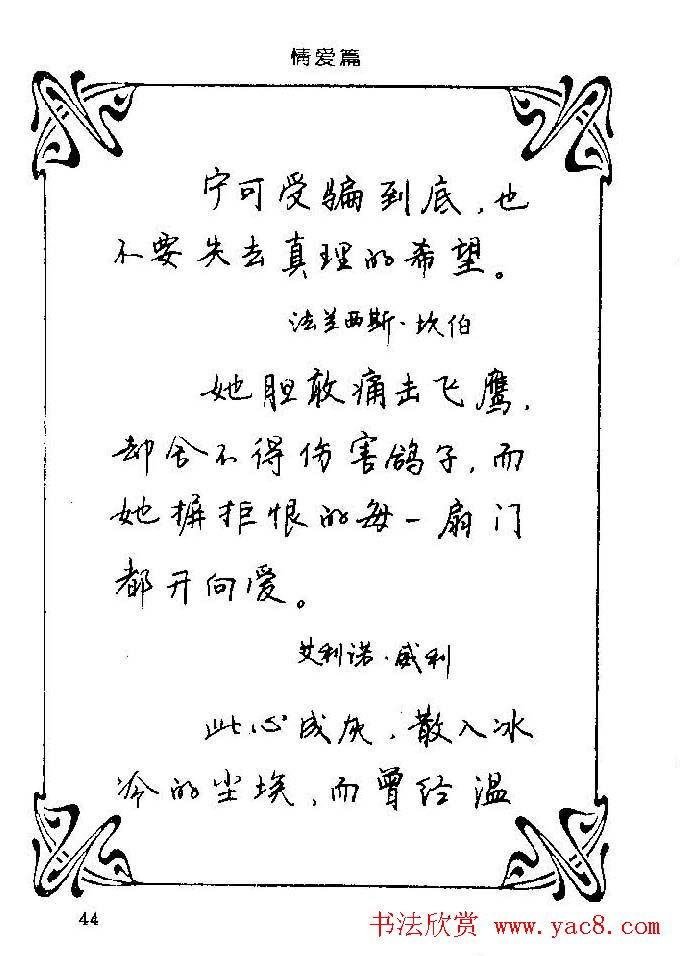 情爱篇
宁可受骗到底,也
不要失去真理的希望。
法兰西斯·坎伯
她胆敢痛击飞鹰,
却舍不得伤害鸽子,而
她摒拒恨的每一扇门
都开向爱。
艾利诺·威利
此心成灰,散入冰
冷的尘埃,而曾经温
44
书法欣赏 www.yac8.com